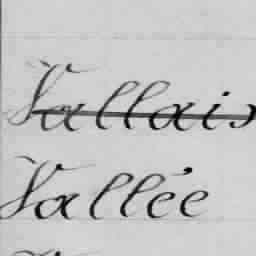 Vallais
Vallée